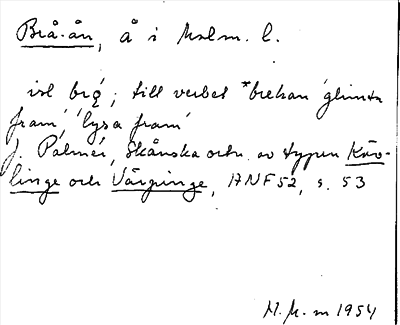 Brå-ån, å i Malm. l.
isl brǫ́; till verbet *brehan 'glimta
fram', 'lysa fram'
J. Palmér, Skånska ortn. av typen Käv-
linge och Värpinge, ANF 52, s. 53
M. M-m 1954